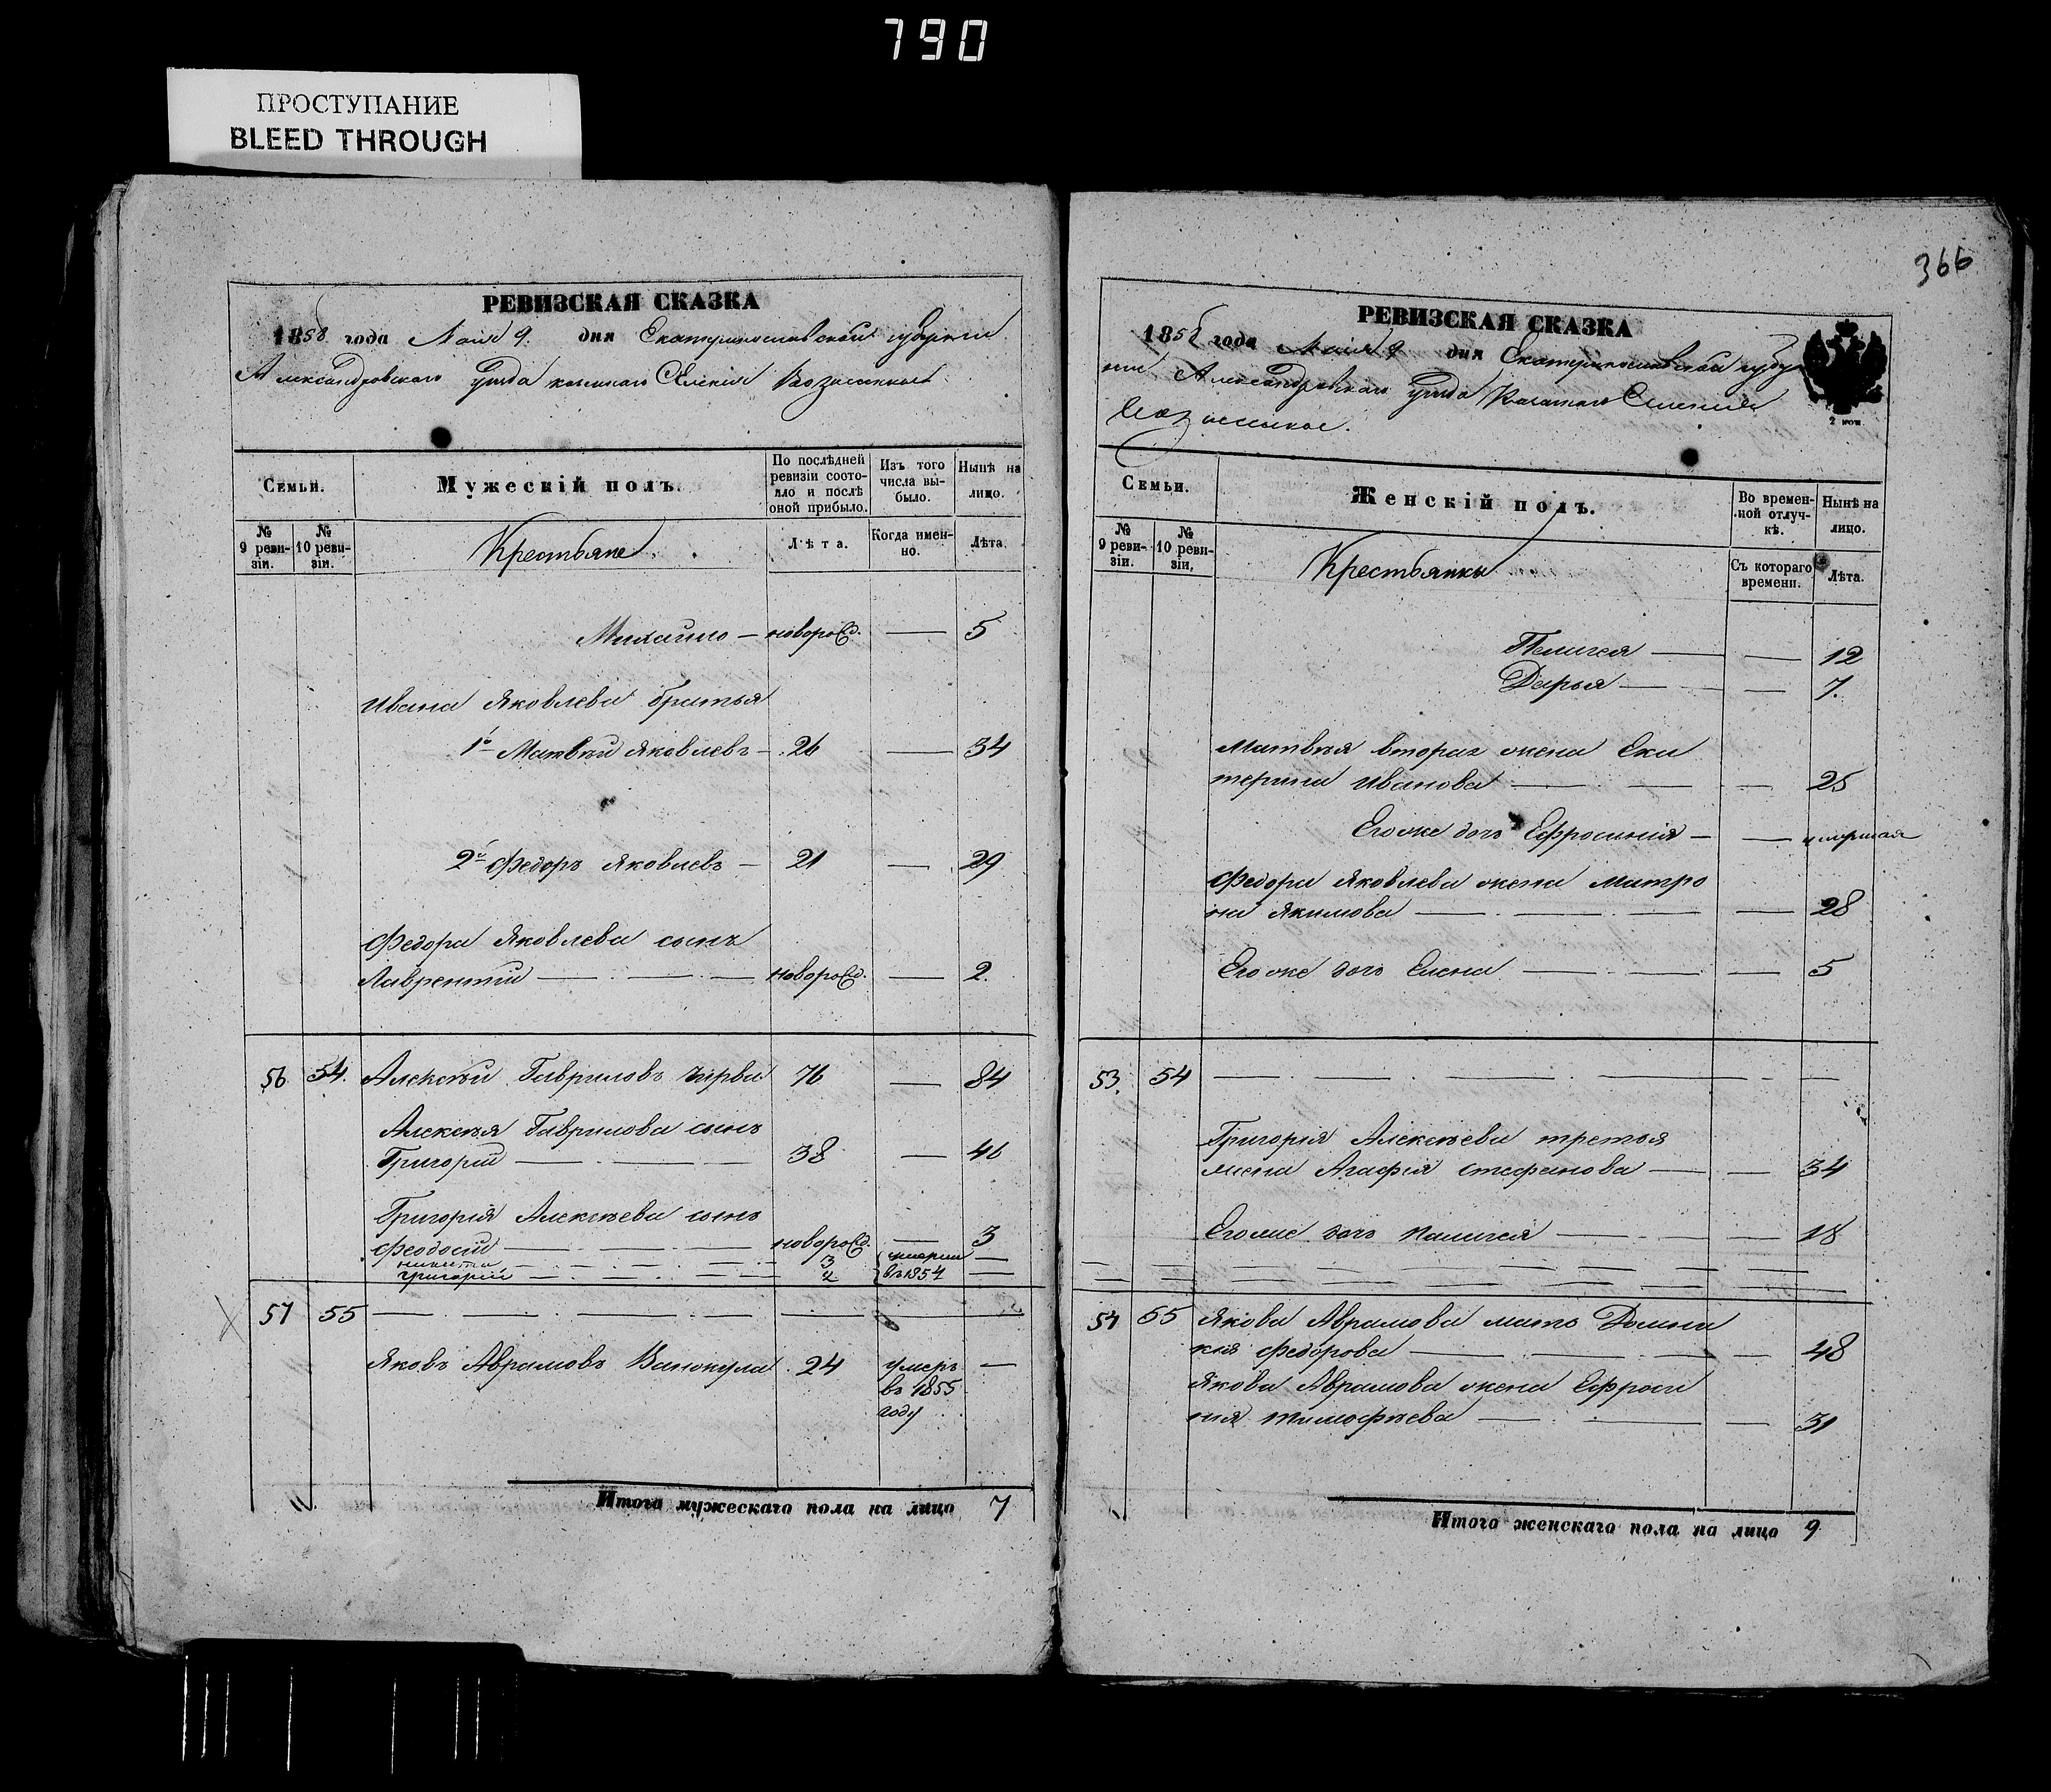 790
ПРОСТУПАНИЕ
BLEED THROUGH
РЕВИЗСКАЯ СКАЗКА
1858 года Маія 9. дня Екатеринославской губерніи
Александровскаго уезда казеннаго Селенія
Семьи.
Мужескій полъ.
По послѣдней ревизіи состояло и послѣ оной прибыло.
Изъ того числа выбыло.
Нынѣ на лицо.
№ 9 ревизіи.
№ 10 ревизіи.
Крестьяне
Лѣта.
Когда именно.
Лѣта.
Михайло — новорожд. — 5
Ивана Яковлева братья
1й Матвѣй Яковлевъ — 26 — 34
2й Федоръ Яковлевъ — 21 — 29
Федора Яковлева сынъ
Лаврентій — новорожд. — 2.
56. 54. Алексѣй Гавриловъ Чирва 76 — 84
Алексѣя Гаврилова сынъ
Григорій — 38 — 46
Григорія Алексѣева сынъ
Феодосій — новорожд. — 3
никита — 3 умерли —
григорій — 2 въ 1854 —
57 55 — — — —
Яковъ Аврамовъ 24 умеръ —
въ 1855
году
Итого мужескаго пола на лицо 7
366
РЕВИЗСКАЯ СКАЗКА
1858 года Маія 9 дня Екатеринославской губер
ніи Александровскаго уезда Казеннаго Селенія
2 коп
Семьи.
Женскій полъ.
Во временной отлучкѣ.
Нынѣ на лицо.
№ 9 ревизіи.
№ 10 ревизіи.
Крестьянки
Съ котораго времени.
Лѣта.
Пелагея — — 12
Дарья — — 7.
Матвѣя вторая жена Ека
терина Иванова — — 25
Его же дочь Ефросинія — — умершая
Федора Яковлева жена Матро
на Якимова — — 28
Его же дочь Елена — — 5
53. 54 — — —
Григорія Алексѣева третья
жена Агафія Стефанова — — 34
Его же дочь Палагея — — 18
57 55 Якова Аврамова мать Домни
кія Федорова — — 48
Якова Аврамова жена Ефроси
нія Тимофѣева — — 31
Итого женскаго пола на лицо 9